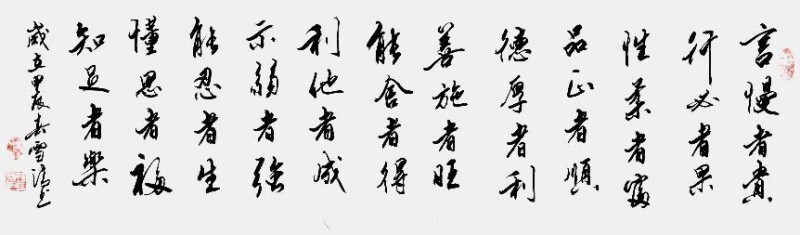 言慢者貴
行必者果
性柔者富
品正者順
德厚者利
善施者旺
能舍者得
利他者成
示弱者强
能忍者生
懂恩者福
知足者樂
歲在甲辰 雪